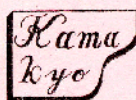 Kama
kyo